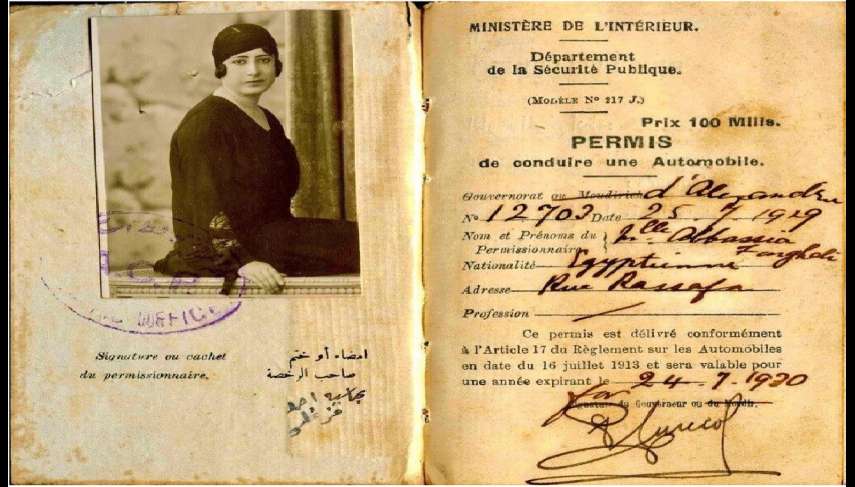 Signature ou cachet
du permissionnaire.
امضاء أو ختم
صاحب الرخصة
MINISTÈRE DE L'INTÉRIEUR.
Département
de la Sécurité Publique.
(MODÈLE Nº 217 J.)
Prix 100 Mills.
PERMIS
de conduire une Automobile.
Gouvernorat ou Moudirieh d'Alexandrie
Nº 12703 Date 25. 7 1929
Nom et Prénoms du Mlle Abbassia
Permissionnaire
Nationalité Egyptienne
Adresse Rue Rassafa
Profession /
Ce permis est délivré conformément
à l'Article 17 du Règlement sur les Automobiles
en date du 16 juillet 1913 et sera valable pour
une année expirant le 24. 7. 1930
for
Signature du Gouverneur ou du Moudir.